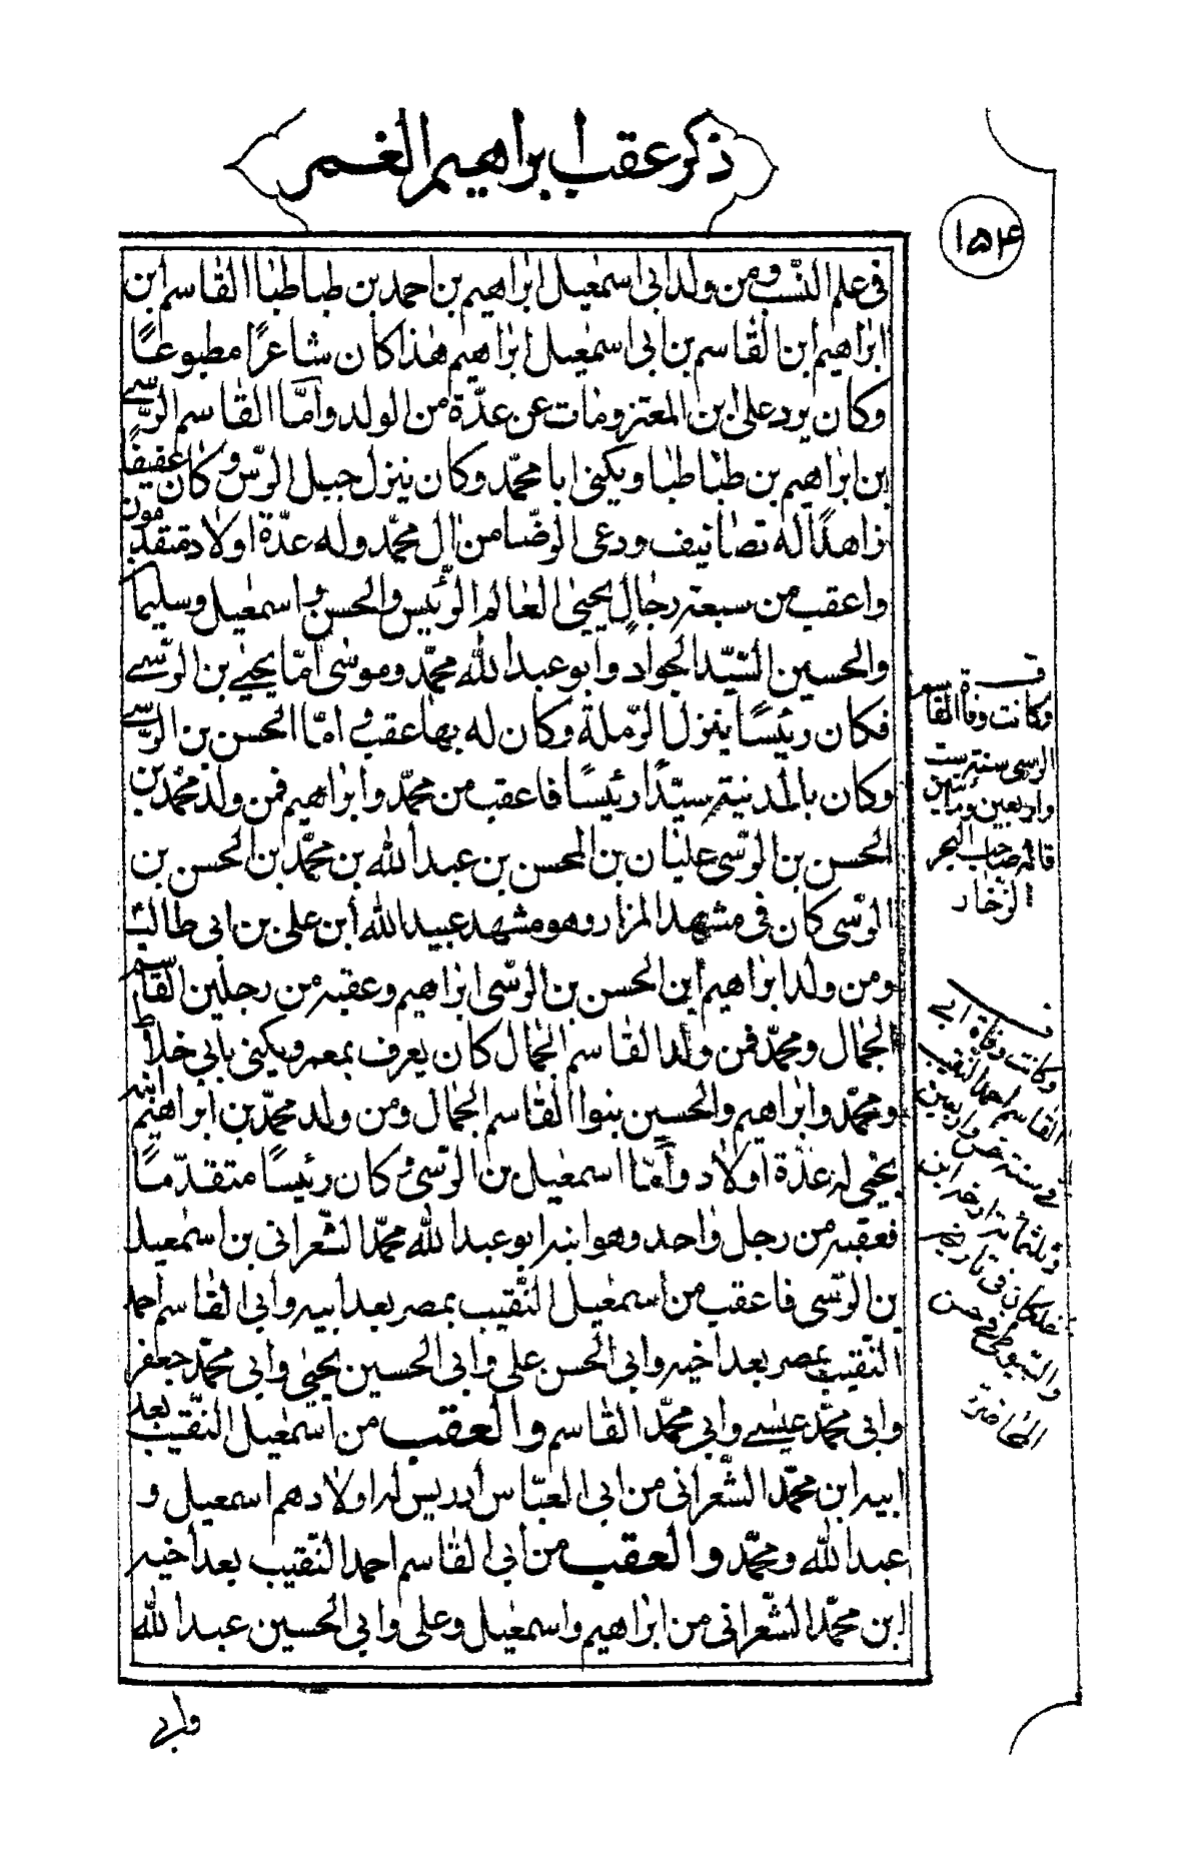 ذكر عقب ابراهيم الغمر
١٥٤
فى علم النّسب ومن ولد ابى اسمعيل ابراهيم بن احمد بن طباطبا القاسم ابن
ابراهيم ابن القاسم بن ابى اسمعيل ابراهيم هذا كان شاعرًا مطبوعًا
وكان يرد على ابن المعتز ومات عن عدّة من الولد وامّا القاسم الرّسى
بن ابراهيم بن طباطبا ويكنى ابا محمّد وكان ينزل جبل الرّس وكان عفيفًا
زاهدًا له تصانيف ودعى الرضا من ال محمّد وله عدّة اولاد متقدمون
واعقب من سبعة رجال يحيى العالم الرّئيس والحسن واسمعيل وسليمان
والحسين السّيّد الجواد وابو عبد الله محمّد وموسى امّا يحيى بن الرّسى
فكان رئيسًا ينزل الرّملة وكان له بها عقب وامّا الحسن بن الرّسى
وكان بالمدينة سيّدًا رئيسًا فاعقب من محمّد وابراهيم فمن ولد محمّد بن
الحسن بن الرّسى عليان بن المحسن بن عبد الله بن محمّد ابن الحسن بن
الرّسى كان فى مشهد المزار وهو مشهد عبيد الله ابن على بن ابى طالب
ومن ولد ابراهيم ابن الحسن بن الرّسى ابراهيم وعقبه من رجلين القاسم
الجمال ومحمّد فمن ولد القاسم الجمال كان يعرف بمعمر ويكنى بابى خلاط
ومحمّد وابراهيم والحسين بنوا القاسم الجمال ومن ولد محمّد بن ابراهيم ابنه
يحيى له عدّة اولاد وامّا اسمعيل بن الرّسى كان رئيسًا متقدّمًا
فعقبه من رجل واحد وهو ابنه ابو عبد الله محمّد الشّعرانى بن اسمعيل
بن الرّسى فاعقب من اسمعيل النّقيب بمصر بعد ابيه وابى القاسم احمد
النّقيب بمصر بعد اخيه وابى الحسن على وابى الحسين يحيى وابى محمّد جعفر
وابى محمّد عيسى وابى محمّد القاسم والعقب من اسمعيل النّقيب بعد
ابيه ابن محمّد الشّعرانى من ابى العبّاس ادريس له اولاد هم اسمعيل و
عبد الله ومحمّد والعقب من ابى القاسم احمد النّقيب بعد اخيه
ابن محمّد الشّعرانى من ابراهيم واسمعيل وعلى وابى الحسين عبد الله
وكانت وفاة القاسم
الرسى سنة ست
واربعين ومأتين
قاله صاحب البحر
الزخّار
وكانت وفاة ابى
القاسم احمد النّقيب
فى سنة خمس واربعين
وثلثمائة ارّخه ابن
خلكان فى تاريخه
والسّيوطى فى حسن
المحاضرة
وابى